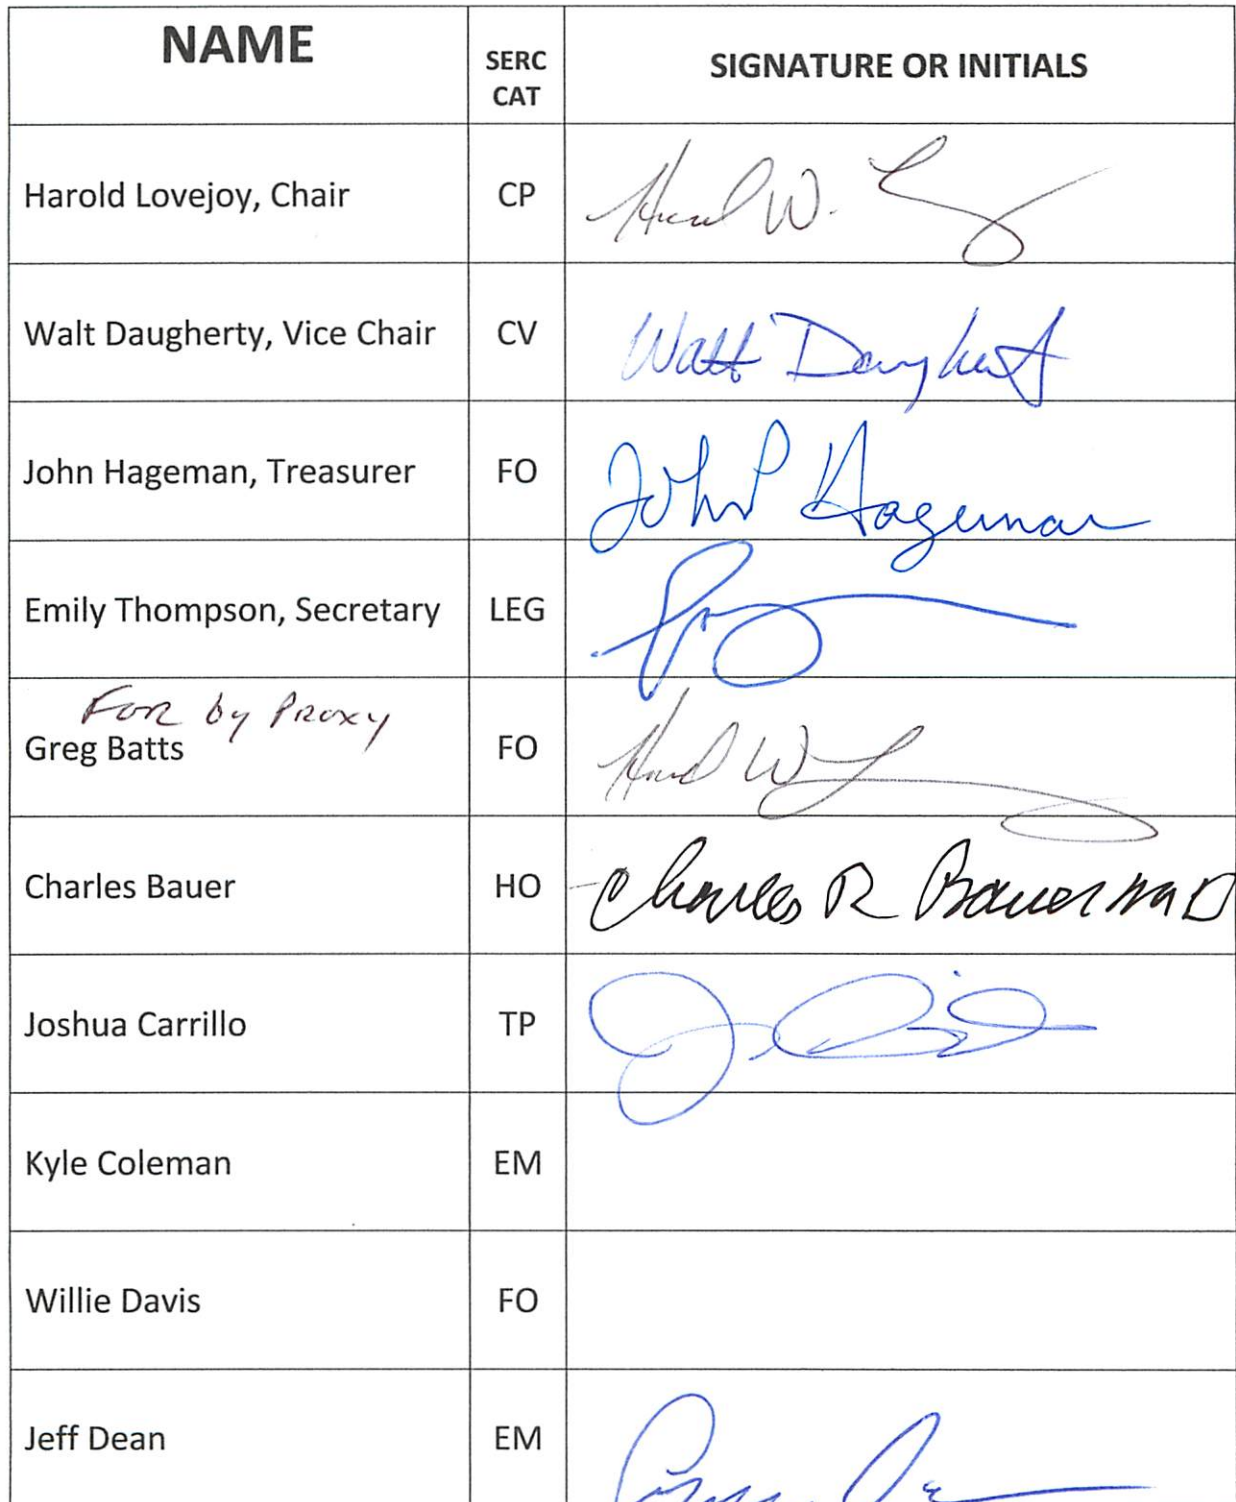 NAME
SERC
CAT
SIGNATURE OR INITIALS
Harold Lovejoy, Chair
CP
W.
Walt Daugherty, Vice Chair
CV
Walt Daugherty
John Hageman, Treasurer
FO
John P Hageman
Emily Thompson, Secretary
LEG
For by Proxy
Greg Batts
FO
W
Charles Bauer
HO
Charles R Bauer MD
Joshua Carrillo
TP
Kyle Coleman
EM
Willie Davis
FO
Jeff Dean
EM